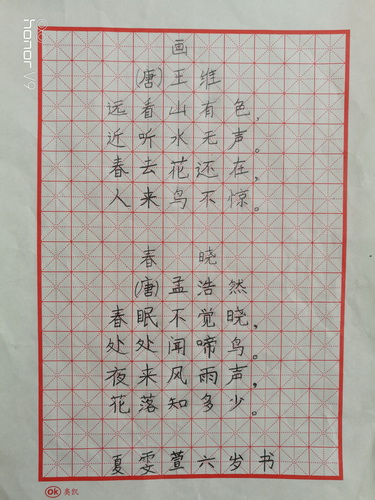 画
(唐)王维
远看山有色,
近听水无声。
春去花还在,
人来鸟不惊。
春晓
(唐)孟浩然
春眠不觉晓,
处处闻啼鸟。
夜来风雨声,
花落知多少。
夏雯萱六岁书
OK 奥凯
honor V9